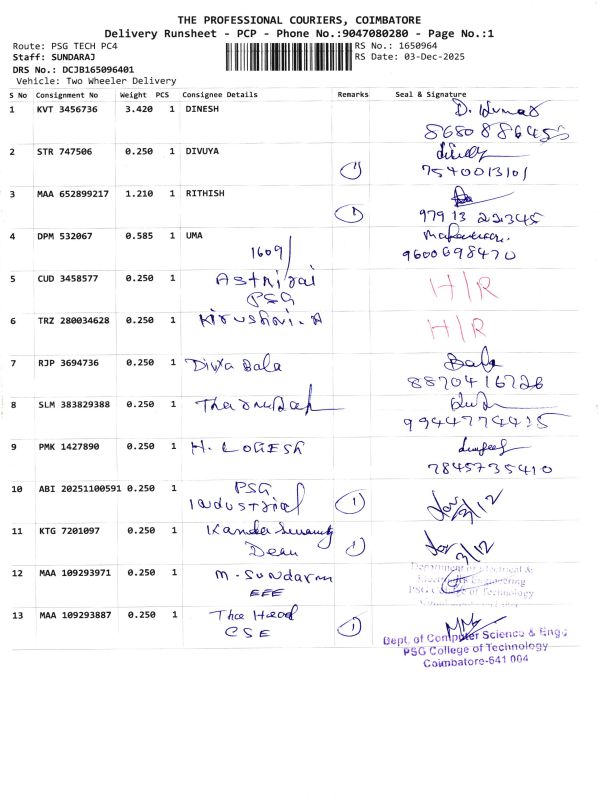 THE PROFESSIONAL COURIERS, COIMBATORE
Delivery Runsheet - PCP - Phone No.:9047080280 - Page No.:1
Route: PSG TECH PC4 RS No.: 1650964
Staff: SUNDARAJ RS Date: 03-Dec-2025
DRS No.: DCJB165096401
Vehicle: Two Wheeler Delivery
S No Consignment No Weight PCS Consignee Details Remarks Seal & Signature
1 KVT 3456736 3.420 1 DINESH D. Kumar
2 STR 747506 0.250 1 DIVUYA
1 7540013101
3 MAA 652899217 1.210 1 RITHISH
1 979 13 22345
4 DPM 532067 0.585 1 UMA
1609/ 9600698470
5 CUD 3458577 0.250 1 H/R
PSG
6 TRZ 280034628 0.250 1 H/R
7 RJP 3694736 0.250 1 Divya Bala Bala
8870416726
8 SLM 383829388 0.250 1
9944774415
9 PMK 1427890 0.250 1 H. LOGESH
7845735410
10 ABI 20251100591 0.250 1 PSG
Industrial 1 3/12
11 KTG 7201097 0.250 1
Dean 1 3/12
12 MAA 109293971 0.250 1 M. Sundaram Department of Electrical &
EEE Electronics Engineering
PSG College of Technology
13 MAA 109293887 0.250 1 The Head 1
CSE Dept. of Computer Science & Engg
PSG College of Technology
Coimbatore-641 004